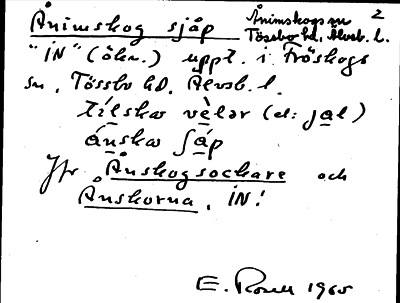 Ånimskog sjåp Ånimskogs sn 2
Tössbo hd. Älvsb. l.
"IN" (ökn.) uppt. i Fröskogs
sn, Tössbo hd. Älvsb. l.
tílska vèlər (el: jal)
ánska ʃáp
Jfr Ånskogsockare och
Anskorna, IN!
E. Rosell 1965